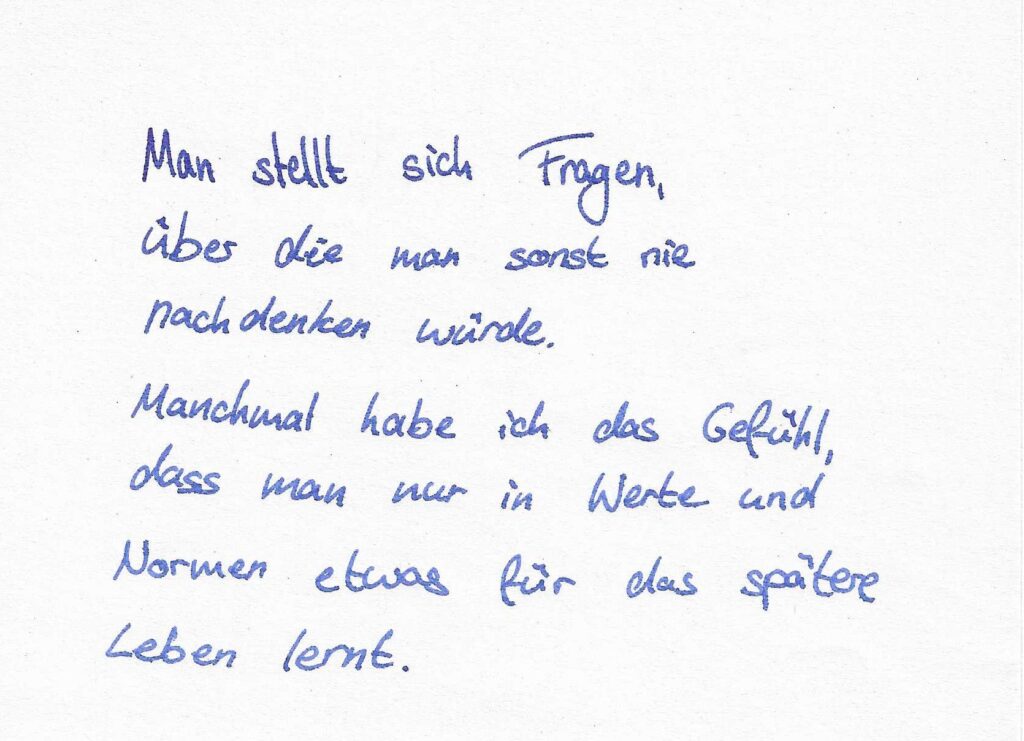 Man stellt sich Fragen,
über die man sonst nie
nachdenken würde.
Manchmal habe ich das Gefühl,
dass man nur in Werte und
Normen etwas für das spätere
Leben lernt.